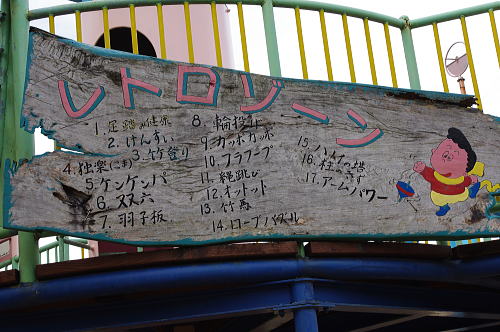 レトロゾーン
1. 足踏み健康
2. けんすい
3. 竹登り
4. 独楽(こま)
5. ケンケンパ
6. 双六
7. 羽子板
8. 輪投げ
9. カッポカッポ
10. フラフープ
11. 縄跳び
12. オットット
13. 竹馬
14. ロープパズル
15. ハノイの塔
16.
17. アームパワー